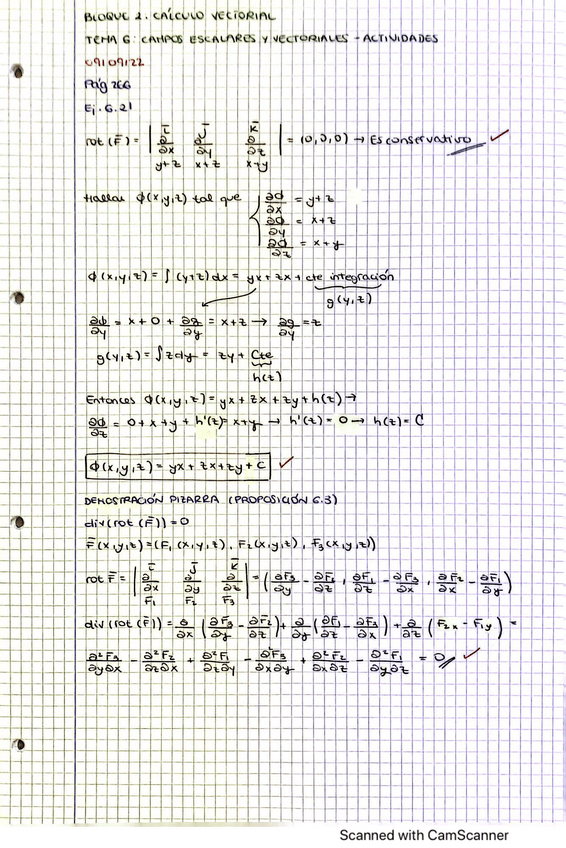 BLOQUE 2. CÁLCULO VECTORIAL
TEMA 6: CAMPOS ESCALARES Y VECTORIALES - ACTIVIDADES
09/09/22
Pág 266
Ej. 6.21
rot (F̄) = | ī j̄ k̄ ; ∂/∂x ∂/∂y ∂/∂z ; y+z x+z x+y | = (0,0,0) → Es conservativo ✓
Hallar ϕ(x,y,z) tal que { ∂ϕ/∂x = y+z
∂ϕ/∂y = x+z
∂ϕ/∂z = x+y
ϕ(x,y,z) = ∫(y+z)dx = yx + zx + cte integración
g(y,z)
∂ϕ/∂y = x + 0 + ∂g/∂y = x+z → ∂g/∂y = z
g(y,z) = ∫zdy = zy + Cte
h(z)
Entonces ϕ(x,y,z) = yx + zx + zy + h(z) →
∂ϕ/∂z = 0 + x + y + h'(z) = x+y → h'(z) = 0 → h(z) = C
ϕ(x,y,z) = yx + zx + zy + C ✓
DEMOSTRACIÓN PIZARRA (PROPOSICIÓN 6.3)
div(rot (F̄)) = 0
F̄(x,y,z) = (F₁ (x,y,z), F₂(x,y,z), F₃(x,y,z))
rot F̄ = | ī j̄ k̄ ; ∂/∂x ∂/∂y ∂/∂z ; F₁ F₂ F₃ | = (∂F₃/∂y - ∂F₂/∂z, ∂F₁/∂z - ∂F₃/∂x, ∂F₂/∂x - ∂F₁/∂y)
div(rot (F̄)) = ∂/∂x (∂F₃/∂y - ∂F₂/∂z) + ∂/∂y (∂F₁/∂z - ∂F₃/∂x) + ∂/∂z (F₂x - F₁y) =
∂²F₃/∂y∂x - ∂²F₂/∂z∂x + ∂²F₁/∂z∂y - ∂²F₃/∂x∂y + ∂²F₂/∂x∂z - ∂²F₁/∂y∂z = 0 ✓
Scanned with CamScanner